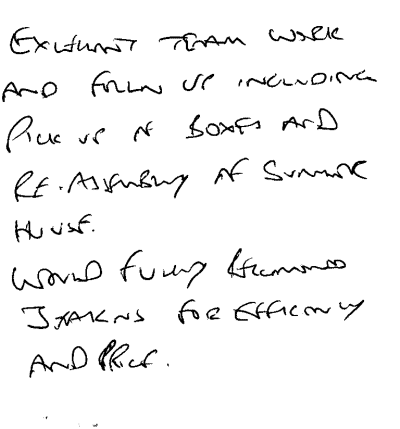 EXCELLENT TEAM WORK
AND FOLLOW UP INCLUDING
PICK UP OF BOXES AND
RE-ASSEMBLY OF SUMMER
HOUSE.
WOULD FULLY RECOMMEND
FOR EFFICIENCY
AND PRICE.